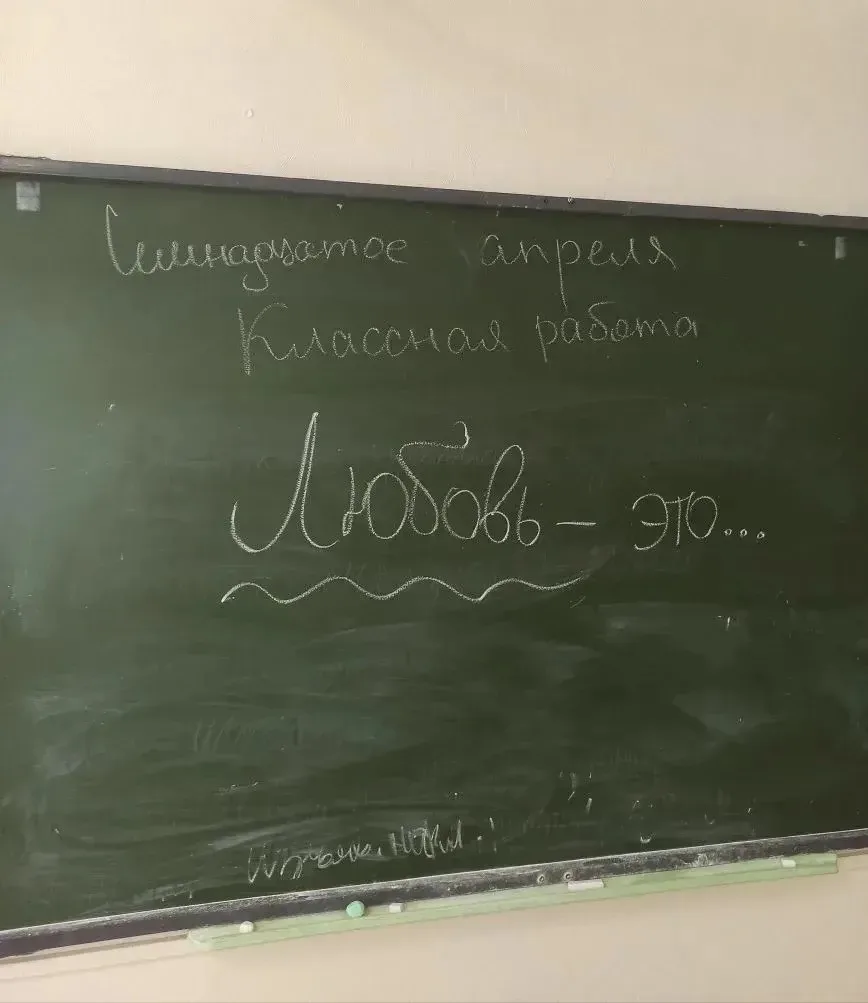 Семнадцатое апреля
Классная работа
Любовь – это...